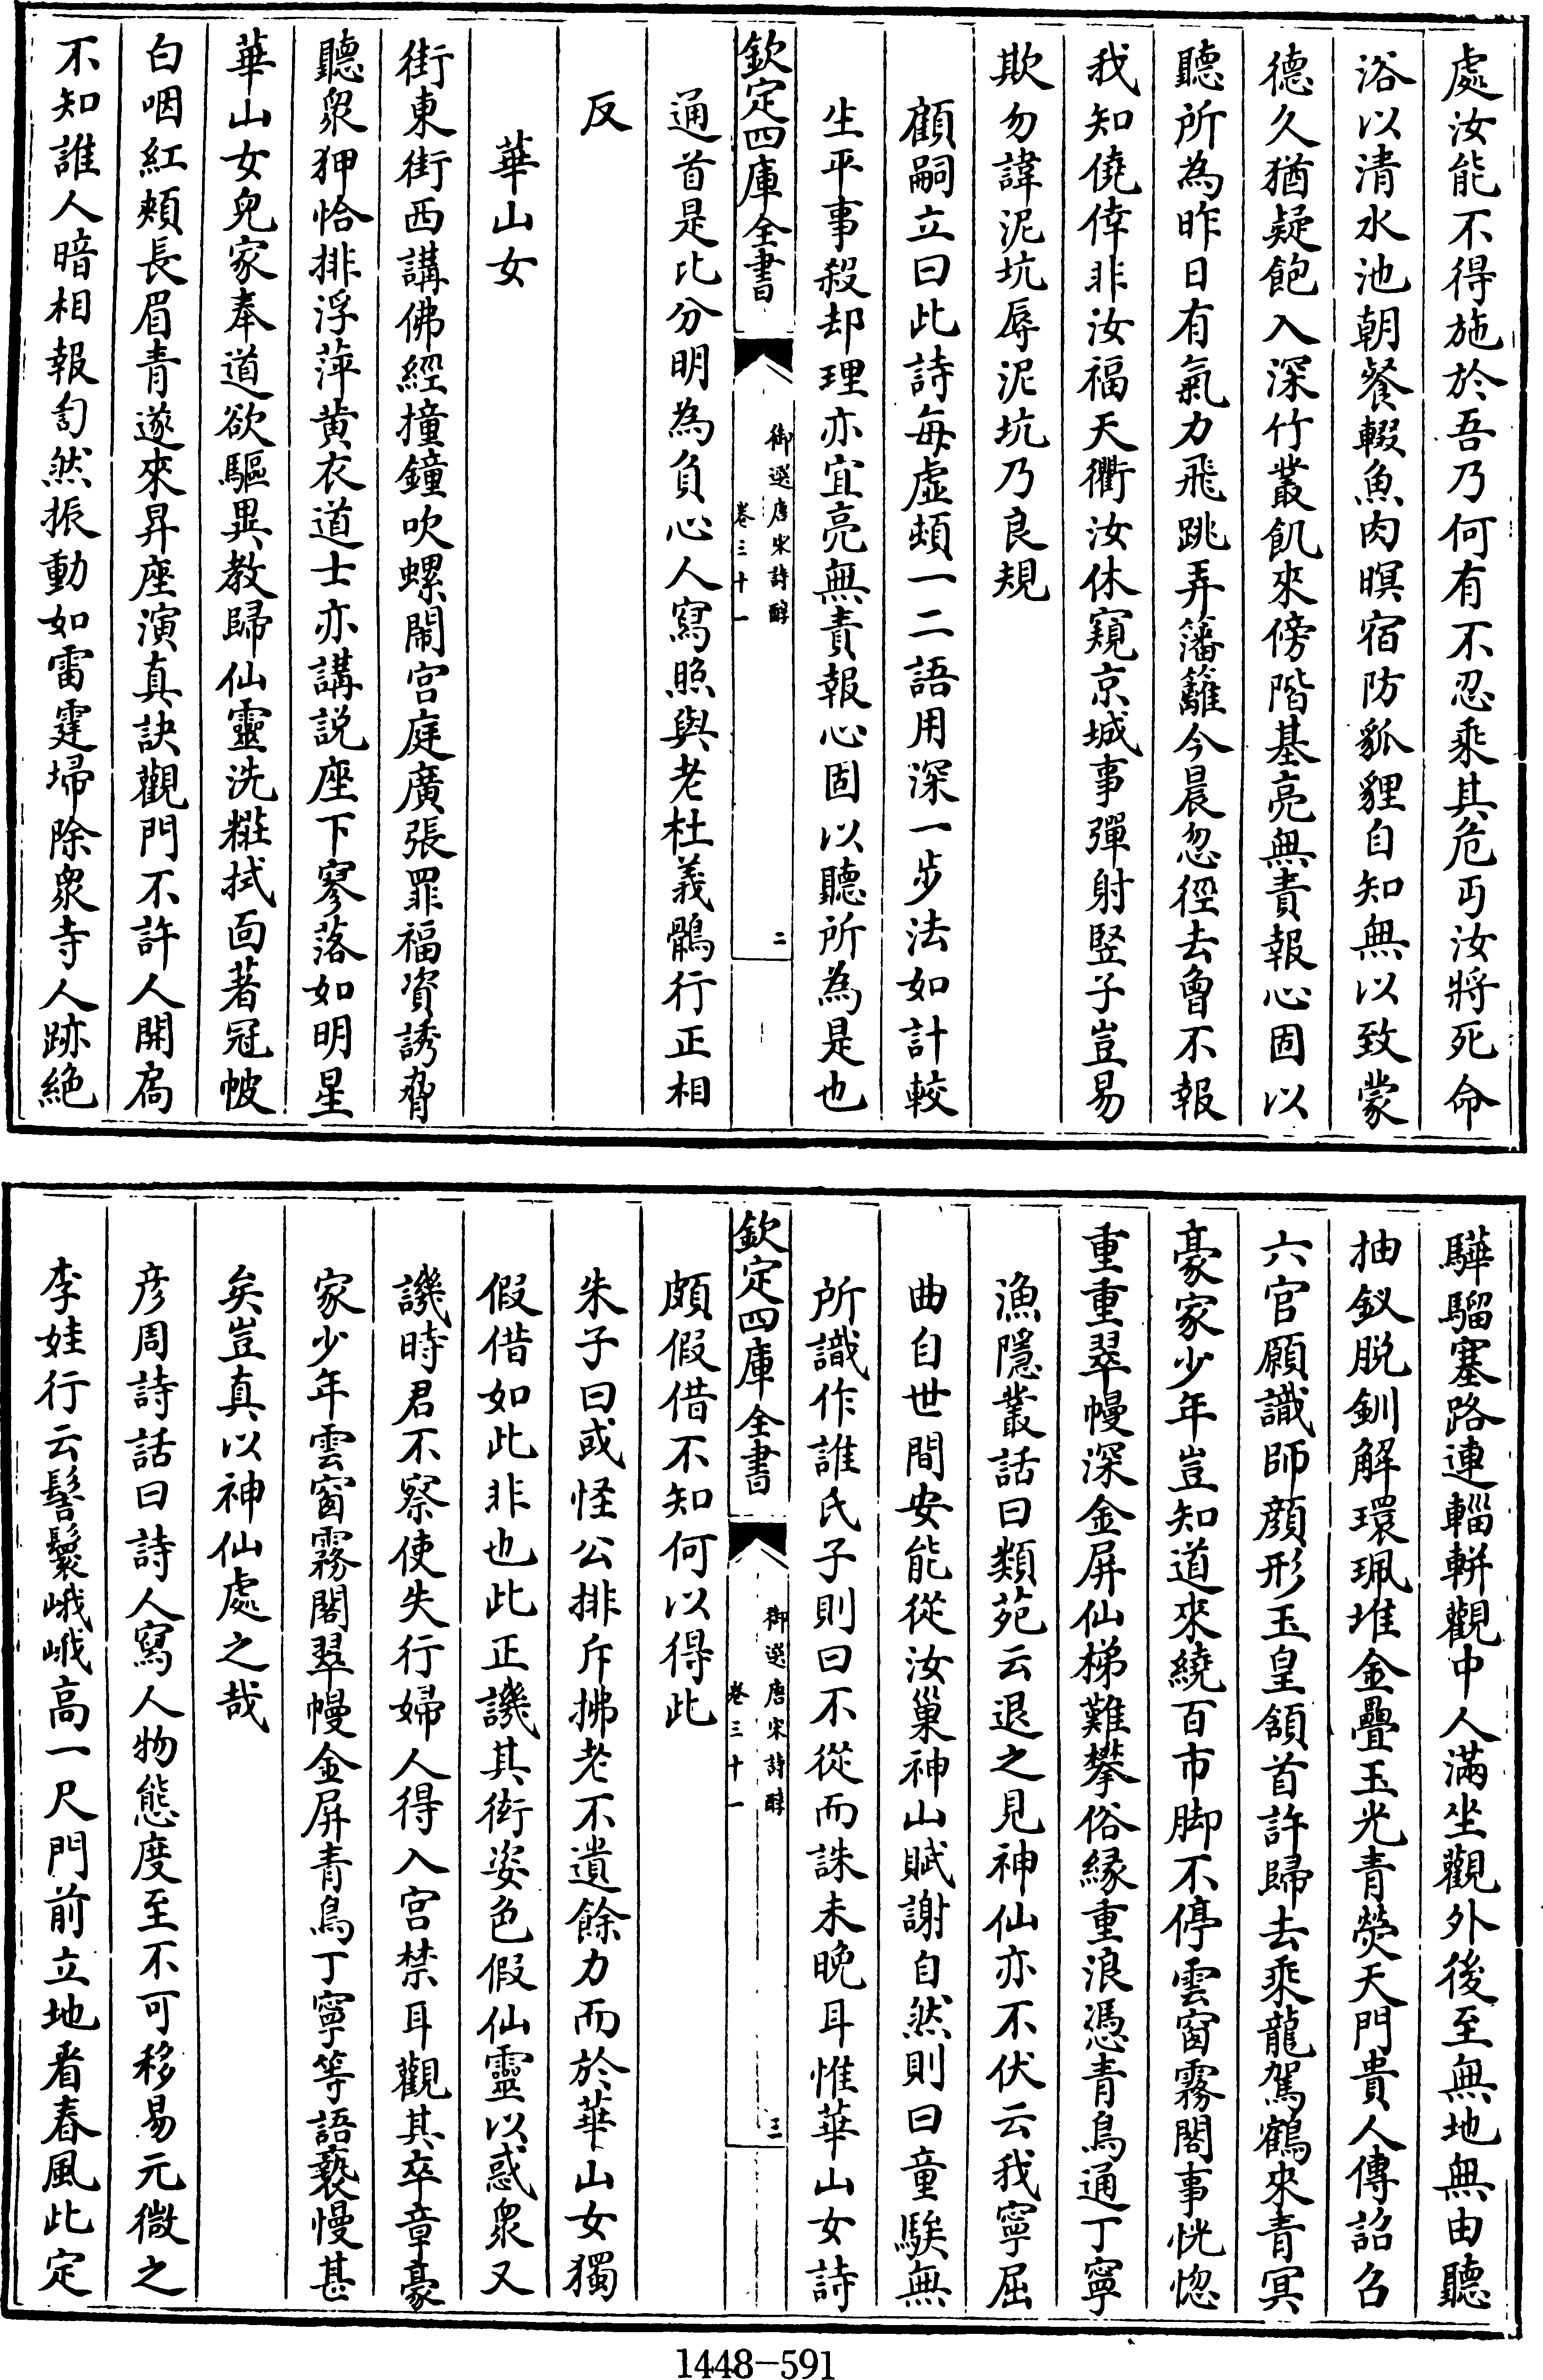 處汝能不得施於吾乃何有不忍乘其危丐汝將死命
浴以清水池朝餐輟魚肉暝宿防狐貍自知無以致蒙
德久猶疑飽入深竹叢飢來傍階基亮無責報心固以
聽所為昨日有氣力飛跳弄籓籬今晨忽徑去曾不報
我知僥倖非汝福天衢汝休窺京城事彈射豎子豈易
欺勿諱泥坑辱泥坑乃良規
顧嗣立曰此詩每虛頓一二語用深一步法如計較
生平事殺却理亦宜亮無責報心固以聽所為是也
欽定四庫全書
御選唐宋詩醇
卷三十一
二
通首是比分明為負心人寫照與老杜義鶻行正相
反
華山女
街東街西講佛經撞鐘吹螺鬧宮庭廣張罪福資誘脅
聽衆狎恰排浮萍黄衣道士亦講説座下寥落如明星
華山女兒家奉道欲驅異教歸仙靈洗糚拭面著冠帔
白咽紅頰長眉青遂來昇座演真訣觀門不許人開扃
不知誰人暗相報訇然振動如雷霆埽除衆寺人跡絶
驊騮塞路連輜軿觀中人滿坐觀外後至無地無由聽
抽釵脱釧解環珮堆金疊玉光青熒天門貴人傳詔召
六宫願識師顔形玉皇頷首許歸去乘龍駕鶴來青冥
豪家少年豈知道來繞百帀脚不停雲窗霧閣事恍惚
重重翠幔深金屏仙梯難攀俗緣重浪憑青鳥通丁寧
漁隱叢話曰類苑云退之見神仙亦不伏云我寧屈
曲自世間安能從汝巢神山賦謝自然則曰童騃無
所識作誰氏子則曰不從而誅未晚耳惟華山女詩
欽定四庫全書
御選唐宋詩醇
卷三十一
三
頗假借不知何以得此
朱子曰或怪公排斥拂老不遺餘力而於華山女獨
假借如此非也此正譏其衒姿色假仙靈以惑衆又
譏時君不察使失行婦人得入宫禁耳觀其卒章豪
家少年雲窗霧閣翠幔金屏青鳥丁寧等語褻慢甚
矣豈真以神仙處之哉
彦周詩話曰詩人寫人物態度至不可移易元微之
李娃行云髻鬟峨峨高一尺門前立地看春風此定
1448-591